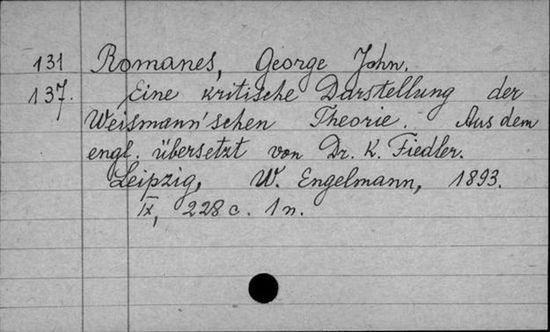 131 Romanes, George John.
137. Eine kritische Darstellung der
Weismann'schen Theorie. Aus dem
engl. übersetzt von Dr. K. Fiedler.
Leipzig, W. Engelmann, 1893.
IX, 228 c. 1 n.